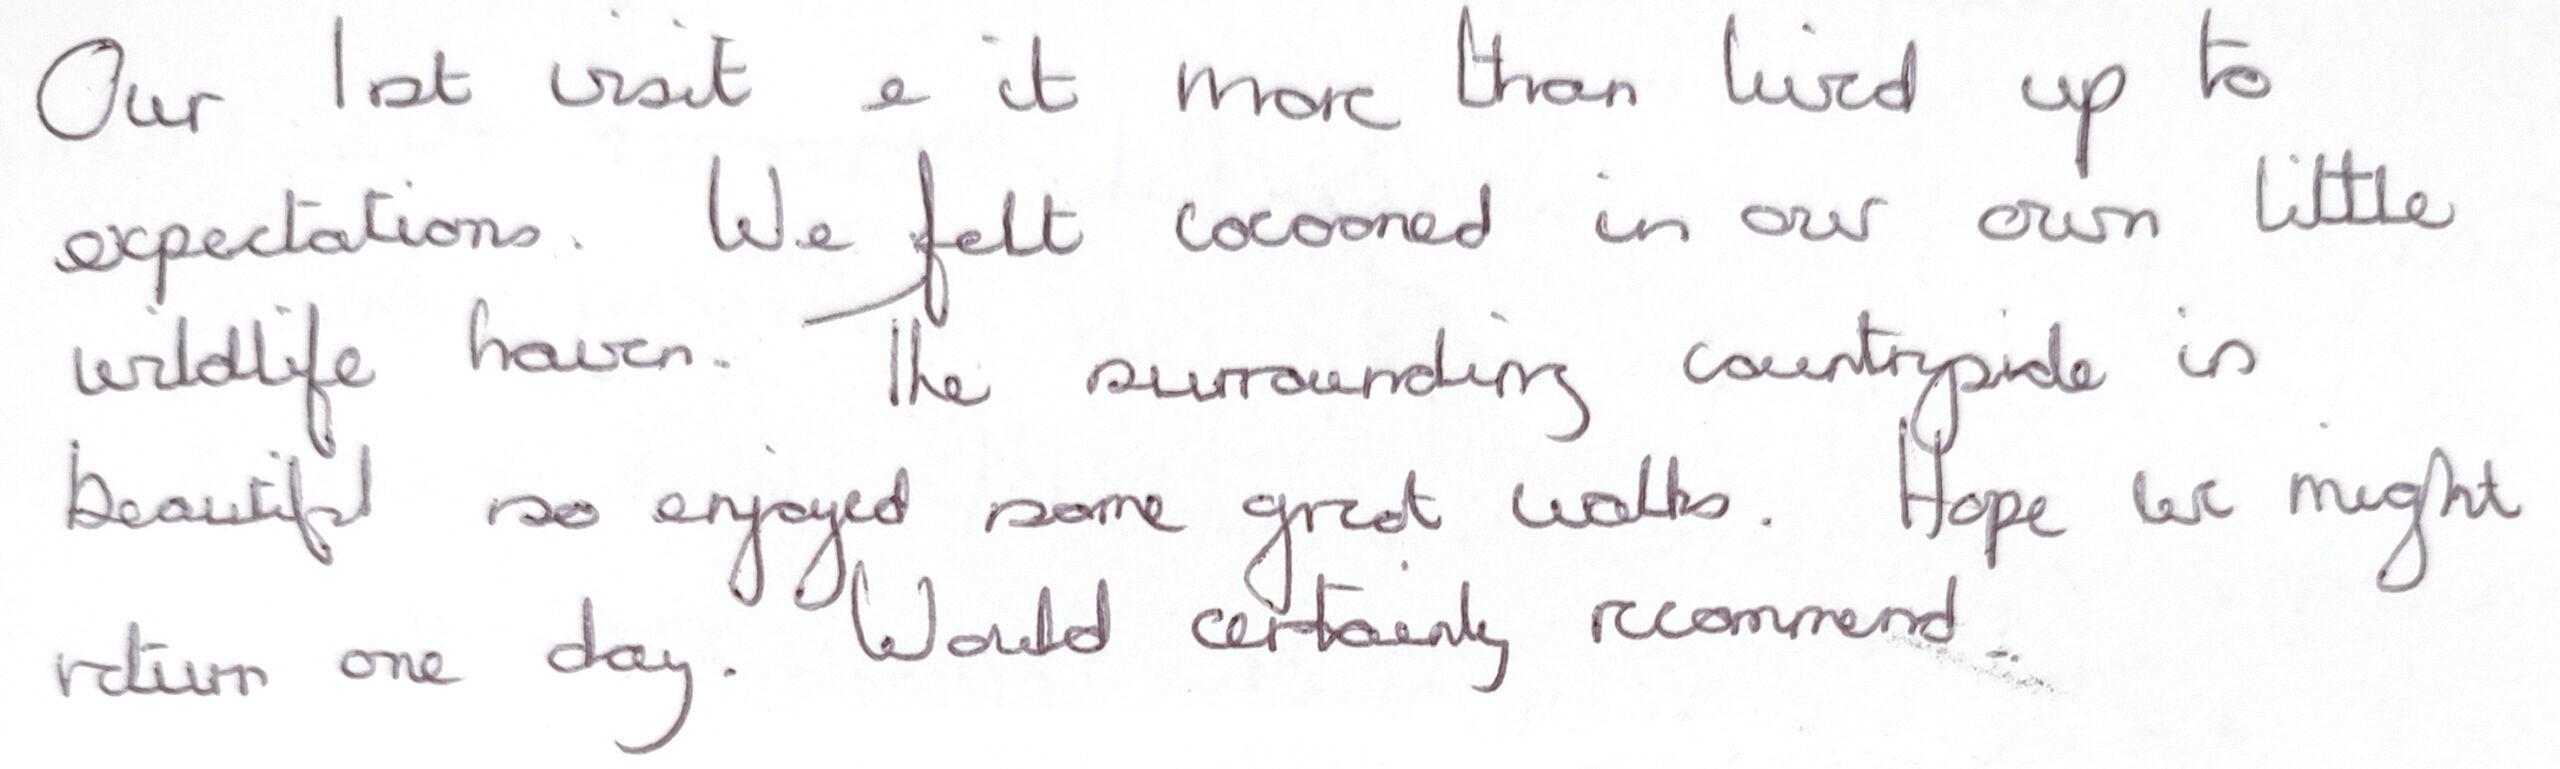 Our 1st visit & it more than lived up to
expectations. We felt cocooned in our own little
wildlife haven. The surrounding countryside is
beautiful so enjoyed some great walks. Hope we might
return one day. Would certainly recommend.